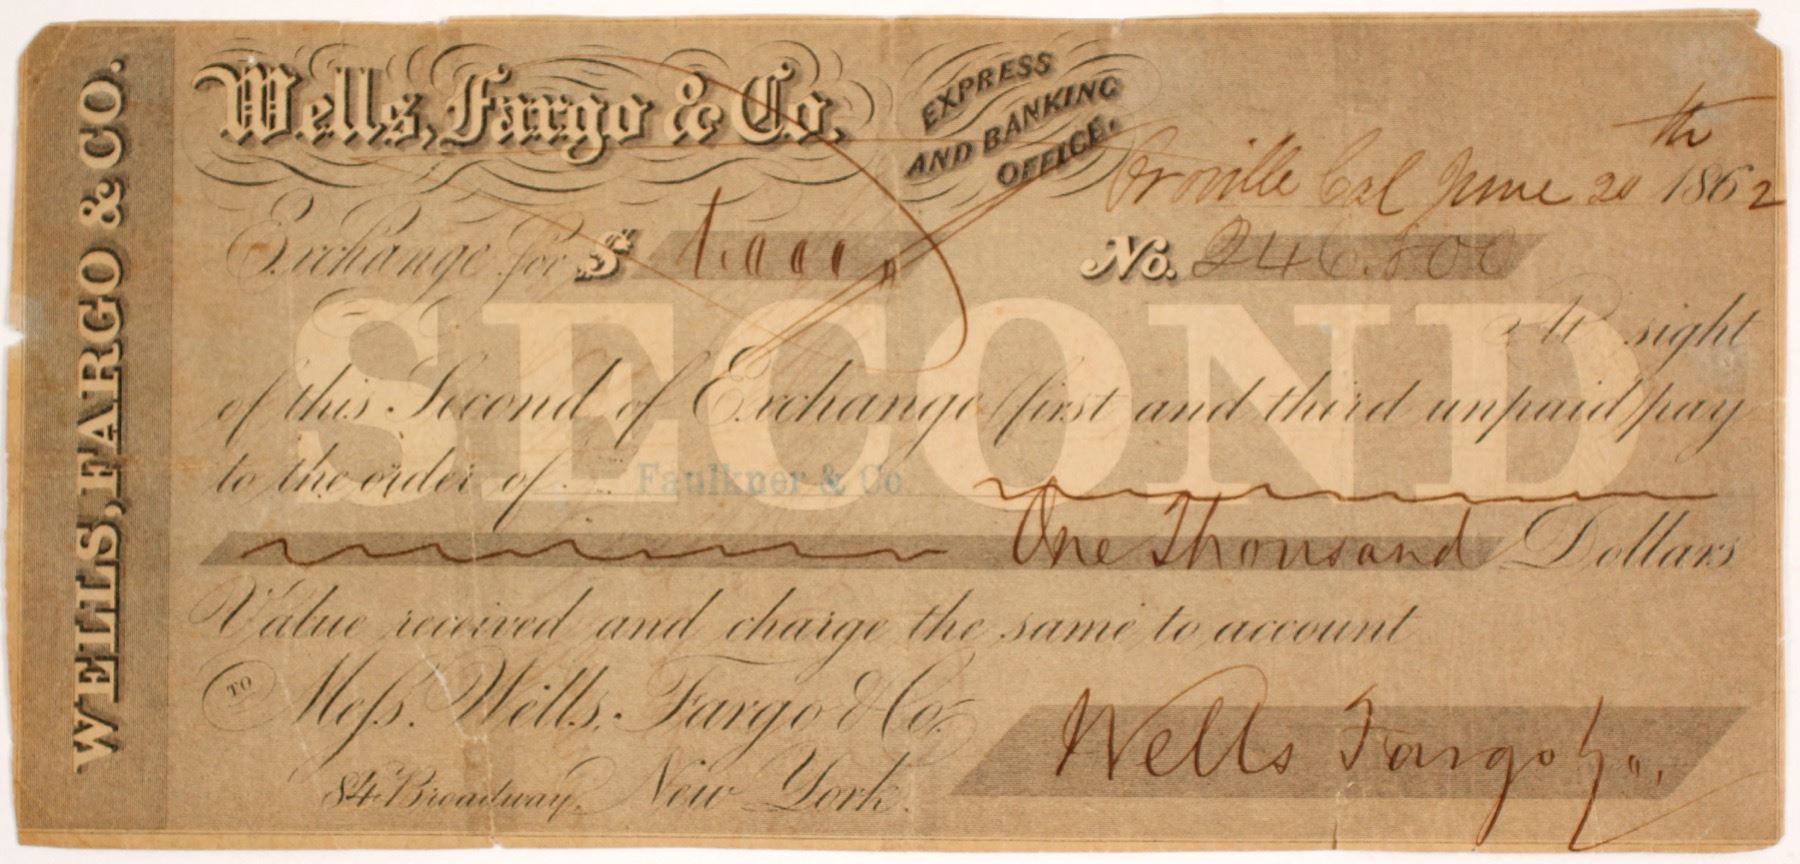 WELLS, FARGO & CO.
Wells, Fargo & Co.
EXPRESS
AND BANKING
OFFICE.
Oroville Cal June 20th 1862
Exchange for $ 1,000, No. 246.500
SECOND
At sight
of this Second of Exchange (first and third unpaid) pay
to the order of Faulkner & Co
One Thousand Dollars
Value received and charge the same to account
TO Mess. Wells, Fargo & Co.
84 Broadway, New York.
Wells Fargo & Co.